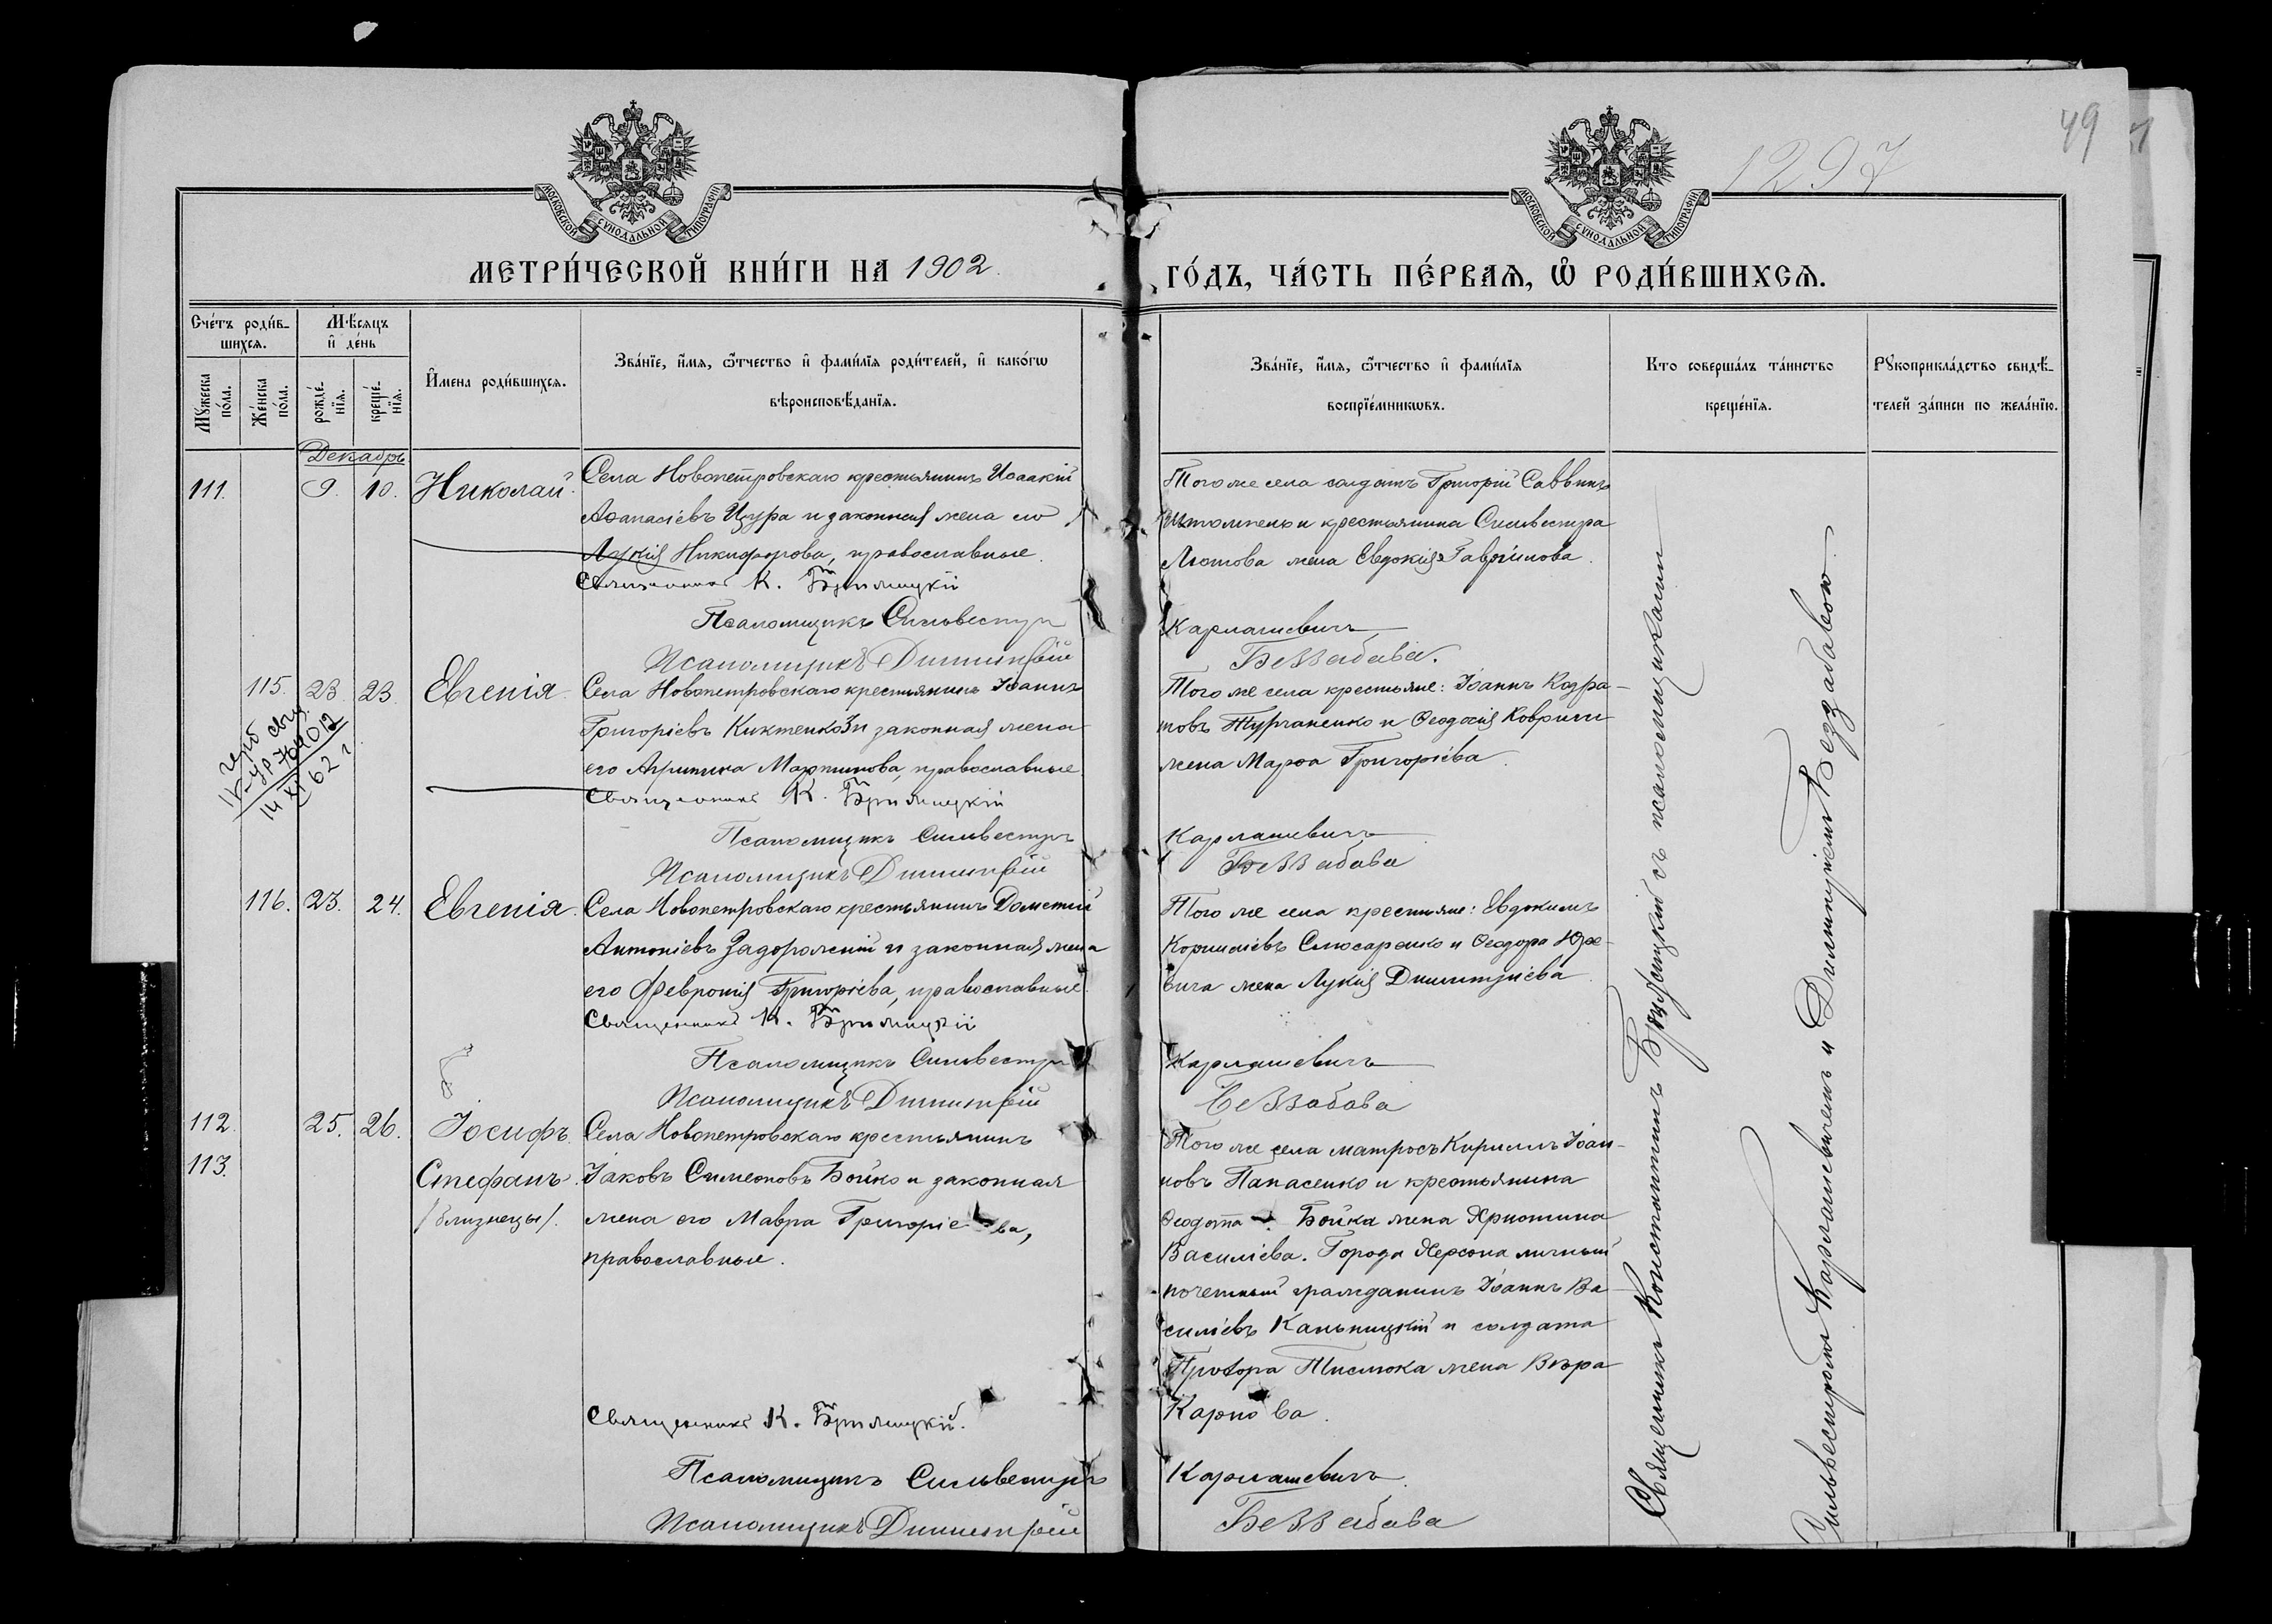 49
1297
МОСКОВСКОЙ СѴНОДАЛЬНОЙ ТИПОГРАФІИ
МОСКОВСКОЙ СѴНОДАЛЬНОЙ ТИПОГРАФІИ
МЕТРИ́ЧЕСКОЙ КНИ́ГИ НА 1902
ГО́ДЪ, ЧА́СТЬ ПЕ́РВАѦ, Ѽ РОДИ́ВШИХСѦ.
Сче́тъ роди́в-
шихсѧ.
Мꙋжеска по́ла.
Же́нска по́ла.
Мѣсѧцъ
и де́нь
рожде́-
нїѧ.
креще́-
нїѧ.
Имена роди́вшихсѧ.
Зва́нїе, и́мѧ, ѻ́тчество и фами́лїѧ роди́телей, и како́гѡ
вѣроисповѣ́данїѧ.
Зва́нїе, и́мѧ, ѻ́тчество и фами́лїѧ
воспрїе́мникѡвъ.
Кто соверша́лъ та́инство
креще́нїѧ.
Рꙋкоприкла́дство свидѣ-
телей за́писи по жела́нїю.
Декабрь
111. 9. 10. Николай.
Села Новопетровскаго крестьянинъ Исаакій
Аѳанасіевъ Цура и законная жена его
Лукія Никифорова, православные.
Священникъ К. Бржизицкій
Псаломщикъ Сильвестръ
Псаломщикъ Димитрій
Того же села солдатъ Григорій Саввинъ
и крестьянина Сильвестра
Лютова жена Евдокія Гавріилова.
Карлашевичъ
Беззабава.
115. 23 23 Евгенія.
герб свид.
764012
14 XI 62 г
Села Новопетровскаго крестьянинъ Іоаннъ
Григоріевъ Киктенко и законная жена
его Агрипина Мартинова, православные.
Священникъ К. Бржизицкій
Псаломщикъ Сильвестръ
Псаломщикъ Димитрій
Того же села крестьяне: Іоаннъ Кодра-
товъ Турчаненко и Ѳеодосія Коврыги
жена Марѳа Григоріева.
Карлашевичъ
Беззабава
116. 23. 24. Евгенія.
Села Новопетровскаго крестьянинъ Дометій
Антоніевъ Задорожній и законная жена
его Февронія Григоріева, православные.
Священникъ К. Бржизицкій
Псаломщикъ Сильвестръ
Псаломщикъ Димитрій
Того же села крестьяне: Евдокимъ
Корниліевъ Слюсаренко и Ѳеодора Юхе-
вича жена Лукія Димитріева
Карлашевичъ
Беззабава
112. 25. 26. Іосифъ.
113. Стефанъ.
/близнецы/.
Села Новопетровскаго крестьянинъ
Іаковъ Симеоновъ Бойко и законная
жена его Мавра Григоріева,
православные.
Священникъ К. Бржизицкій.
Псаломщикъ Сильвестръ
Псаломщикъ Димитрій
Того же села матросъ Кириллъ Іоан-
новъ Папасенко и крестьянина
Ѳеодота Бойка жена Христина
Василіева. Города Херсона личный
почетный гражданинъ Іоаннъ Ва-
силіевъ Каньницкій и солдата
Протора Тислюка жена Вѣра
Карпова.
Карлашевичъ
Беззабава
Священникъ Константинъ Бржизицкій съ псаломщиками
Сильвестромъ Карлашевичемъ и Димитріемъ Беззабавою